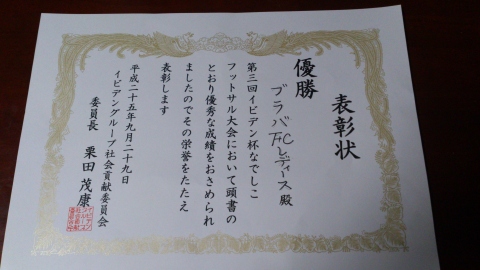 表彰状
優勝
ブラバFCレディース殿
第三回イビデン杯なでしこ
フットサル大会において頭書の
とおり優秀な成績をおさめられ
ましたのでその栄誉をたたえ
表彰します
平成二十五年九月二十九日
イビデングループ社会貢献委員会
委員長 栗田 茂康